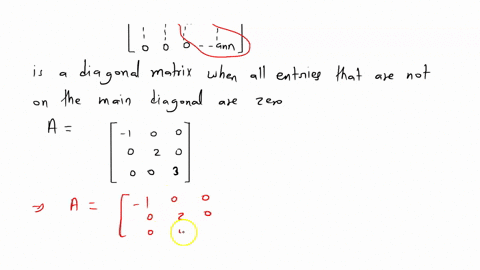 0 0 0 - - ann
is a diagonal matrix when all entries that are not
on the main diagonal are zero
A =
-1 0 0
0 2 0
0 0 3
⇒ A = [ -1 0 0
0 2 0
0